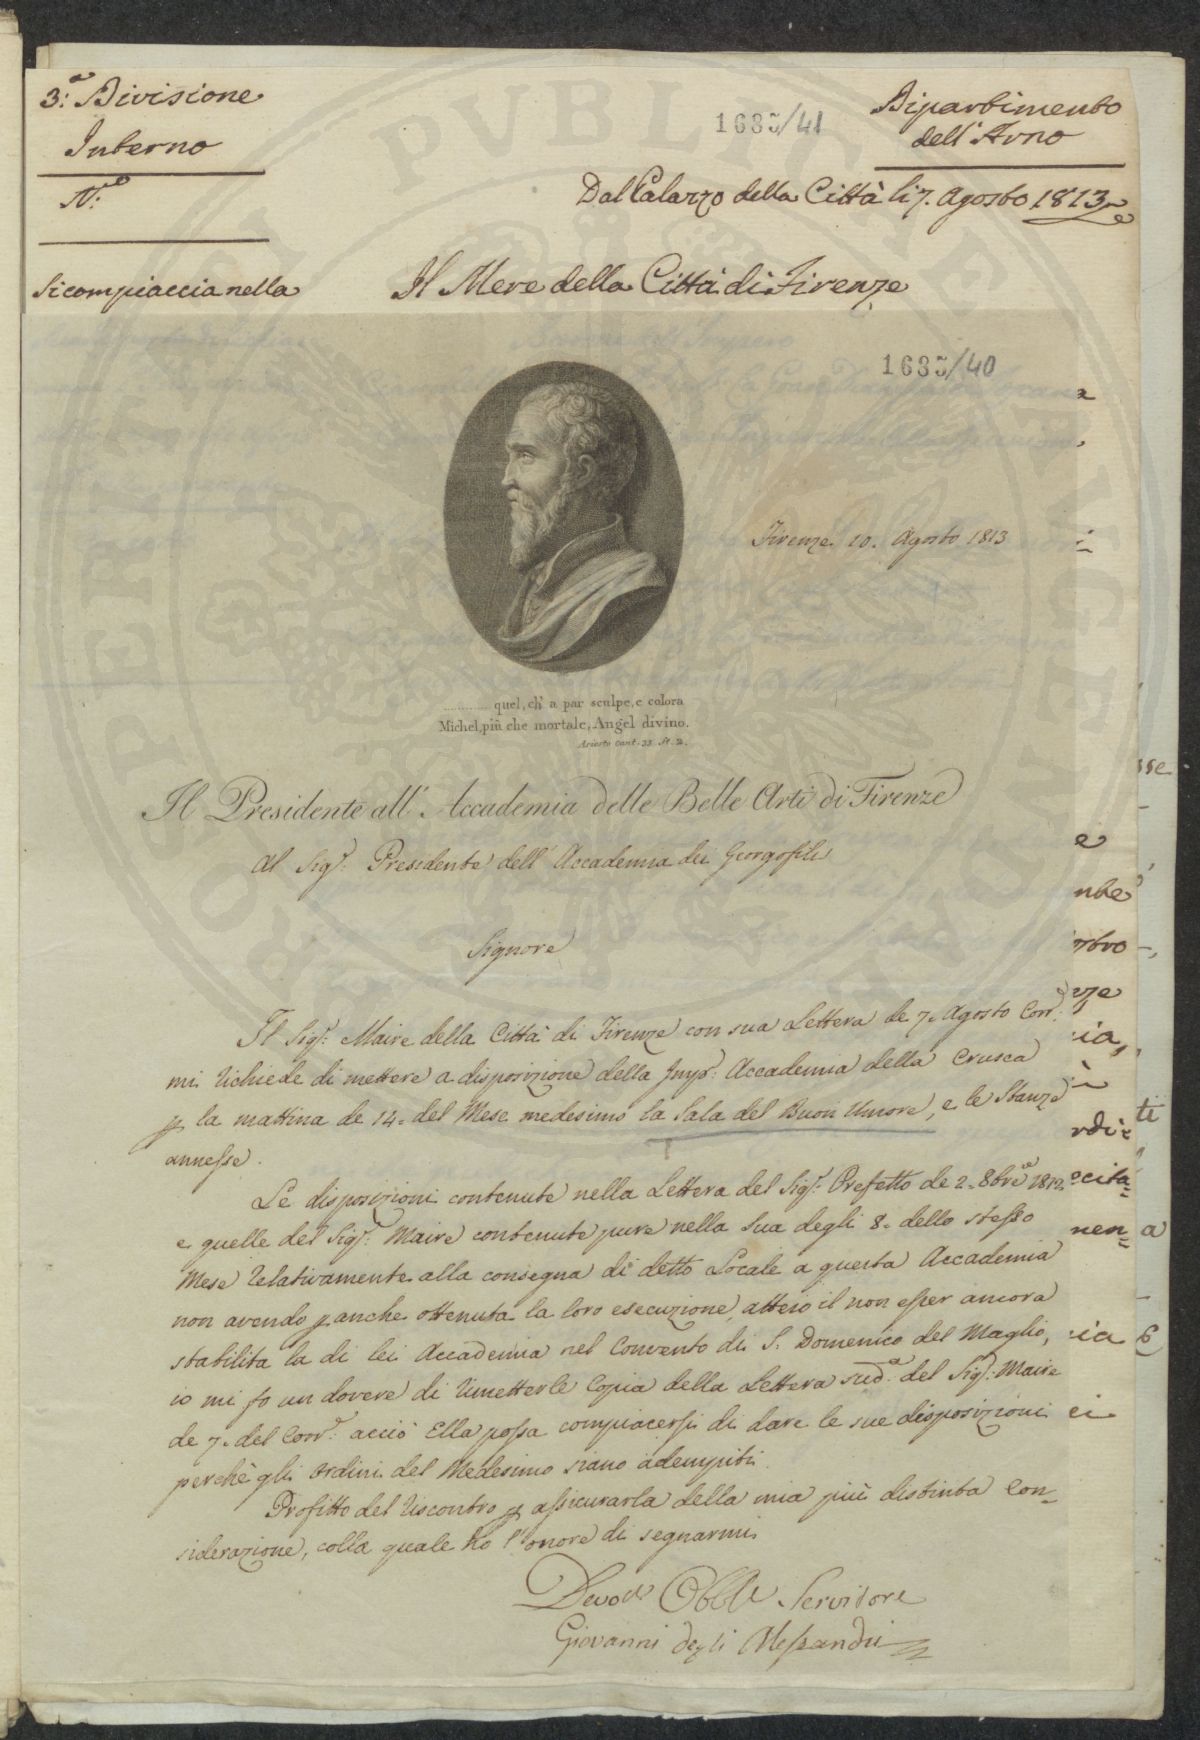 3.ª Divisione
Interno
N.º
1685/41
Dipartimento
dell'Arno
Dal Palazzo della Città li 7. Agosto 1813
Si compiaccia nella
Il Mere della Città di Firenze
1685/40
Firenze 10. Agosto 1813
quel, ch' a par sculpe, e colora
Michel, più che mortale, Angel divino.
Ariosto Cant. 33. St. 2.
Il Presidente all' Accademia delle Belle Arti di Firenze
Al Sigr. Presidente dell' Accademia dei Georgofili
Signore
Il Sigr. Maire della Città di Firenze con sua Lettera de 7. Agosto Corr.
mi richiede di mettere a disposizione della Imp. Accademia della Crusca
p la mattina de 14. del Mese medesimo la Sala del Buon Umore, e le Stanze
annesse.
Le disposizioni contenute nella Lettera del Sigr. Prefetto de 2. 8bre 1812
e quelle del Sigr. Maire contenute pure nella sua degli 8. dello stesso
Mese relativamente alla consegna di detto Locale a questa Accademia
non avendo p anche ottenuta la loro esecuzione, atteso il non esser ancora
stabilita la di lei Accademia nel Convento di S. Domenico del Maglio,
io mi fo un dovere di rimetterle Copia della Lettera sudª. del Sigr. Maire
de 7. del Corr. acciò Ella possa compiacersi di dare le sue disposizioni
perchè gli ordini del Medesimo siano adempiti.
Profitto del riscontro p assicurarla della mia più distinta Con-
siderazione, colla quale ho l'onore di segnarmi
Devo Obbl Servitore
Giovanni degli Alessandri